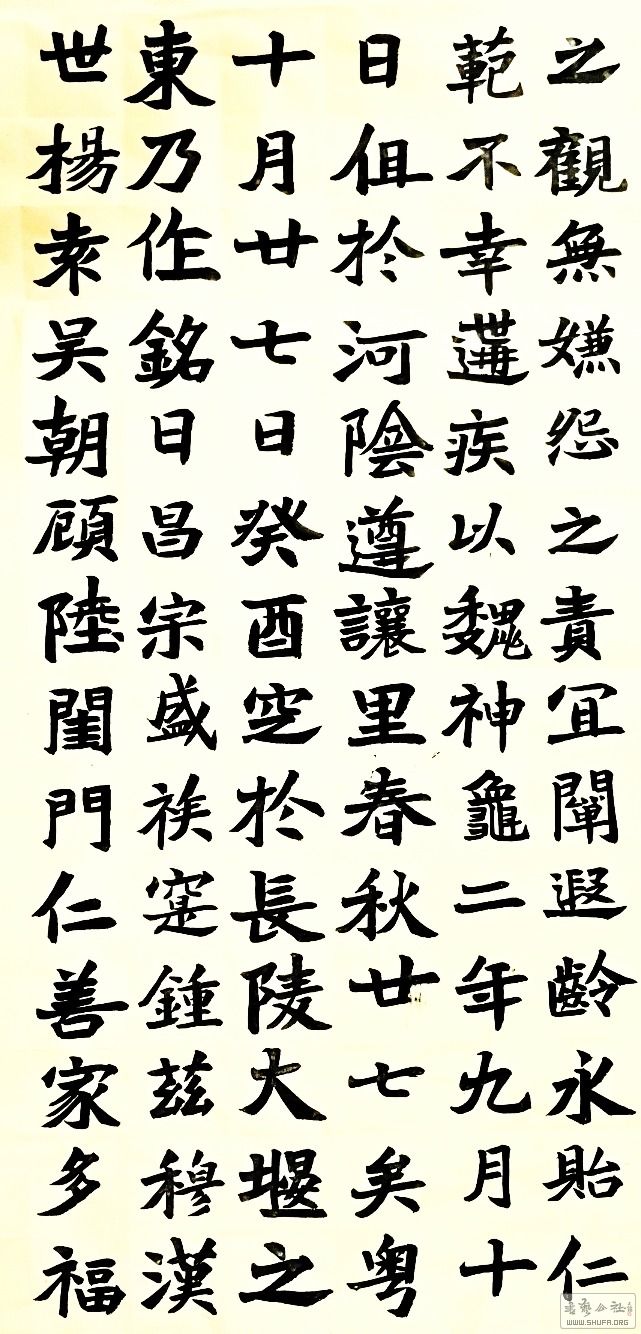 之觀無嫌怨之責宜闡遐齡永貽仁
範不幸遘疾以魏神龜二年九月十
日俎於河陰遵讓里春秋廿七矣粵
十月廿七日癸酉窆於長陵大堰之
東乃作銘曰昌宗盛族寔鍾茲穆漢
世楊袁吳朝顧陸閨門仁善家多福
書藝公社
WWW.SHUFA.ORG